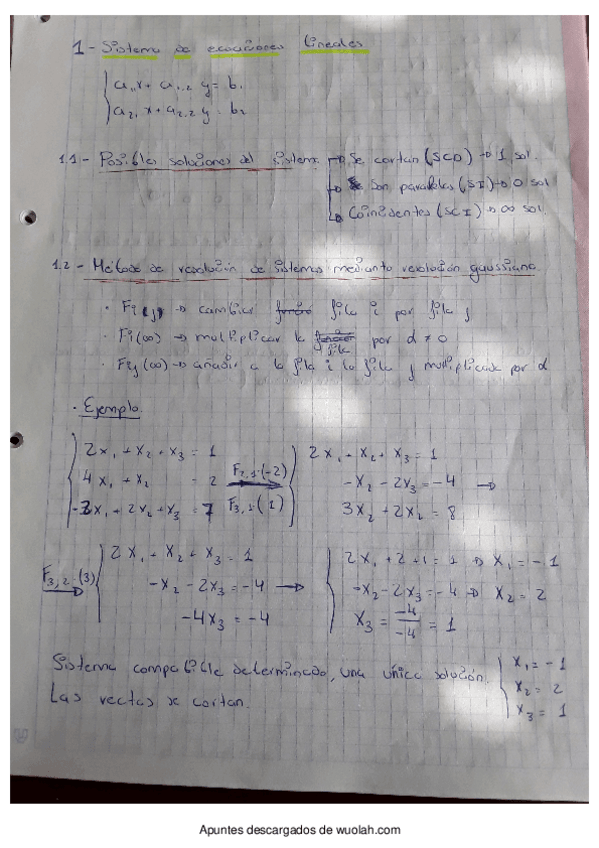 1 - Sistema de ecuaciones lineales
a₁₁x + a₁,₂ y = b₁
a₂₁ x + a₂,₂ y = b₂
1.1 - Posibles soluciones del sistema → Se cortan (SCD) → 1 sol.
→ Son paralelas (SI) → 0 sol
→ Coinidentes (SCI) → ∞ sol.
1.2 - Método de resolución de sistemas mediante resolución gaussiana
· Fi(j) → cambiar fila i por fila j
· Fi(∞) → multiplicar la fila por α ≠ 0
· Fij(∞) → añadir a la fila i la fila j multiplicada por α
· Ejemplo.
2x₁ + x₂ + x₃ = 1
4x₁ + x₂ = 2
-2x₁ + 2x₂ + x₃ = 7
F₂,₁·(-2)
F₃,₁·(1)
2x₁ + x₂ + x₃ = 1
-x₂ - 2x₃ = -4 →
3x₂ + 2x₂ = 8
F₃,₂·(3)
2x₁ + x₂ + x₃ = 1
-x₂ - 2x₃ = -4 →
-4x₃ = -4
2x₁ + 2 + 1 = 1 → x₁ = -1
-x₂ - 2x₃ = -4 → x₂ = 2
x₃ = -4/-4 = 1
Sistema compatible determinado, una única solución.
Las rectas se cortan.
x₁ = -1
x₂ = 2
x₃ = 1
Apuntes descargados de wuolah.com